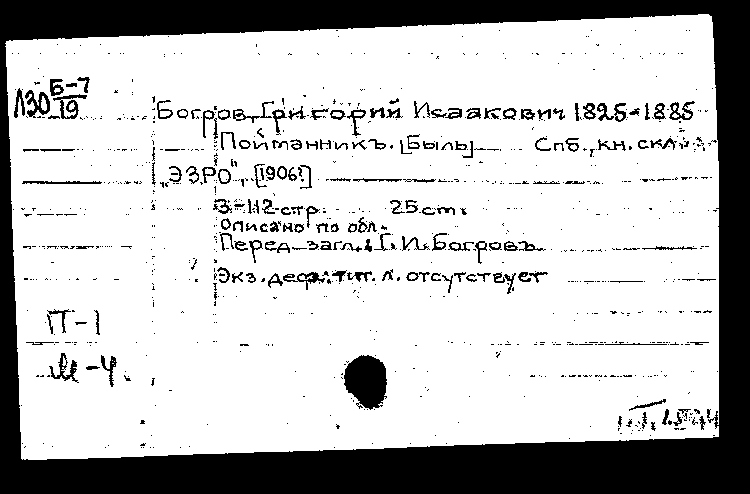 Л30 Б-7
19
Богров, Григорий Исаакович 1825-1885
Пойманникъ. [Быль] Спб., кн. скл.
„ЭЗРО", [1906?]
3-112 стр. 25 ст.
Описано по обл.
Перед загл.: Г. И. Богровъ
Экз. деф.: тит. л. отсутствует
П-1
М-4.